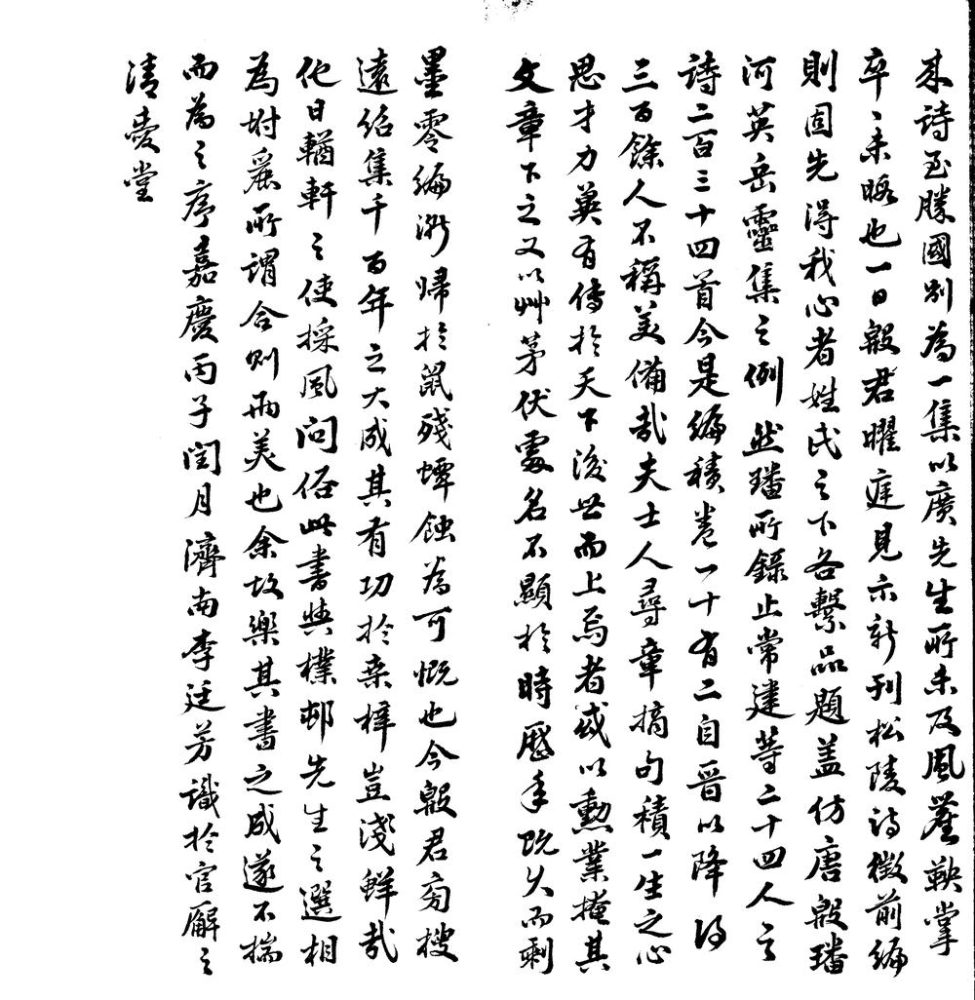 采詩至勝國別為一集以廣先生所未及風塵鞅掌
卒〻未暇也一日殷君曜庭見示新刊松陵詩徵前編
則固先得我心者姓氏之下各繫品題盖仿唐殷璠
河英岳靈集之例然璠所錄止常建等二十四人之
詩二百三十四首今是編積卷一十有二自晉以降得
三百餘人不稱美備哉夫士人尋章摘句積一生之心
思才力冀有傳於天下後世而上焉者或以勳業掩其
文章下之又以艸茅伏處名不顯於時歷年既久而剩
墨零編漸歸於鼠殘蟫蝕為可慨也今殷君旁搜
遠紹集千百年之大成其有功於桑梓豈淺鮮哉
他日輶軒之使採風問俗此書與樸邨先生之選相
為坿麗所謂合則兩美也余故樂其書之成遂不揣
而為之序嘉慶丙子閏月濟南李廷芳識於官廨之
清愛堂